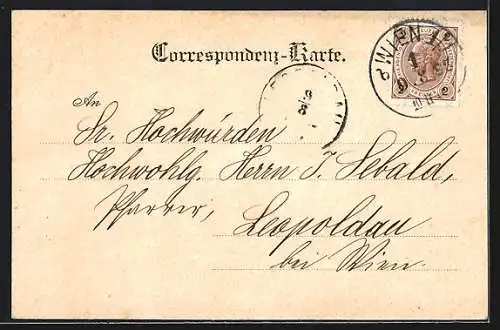 Correspondenz-Karte.
WIEN
An
Sr. Hochwürden
Hochwohlg. Herrn J. Sebald,
Pfarrer,
Leopoldau
bei Wien.